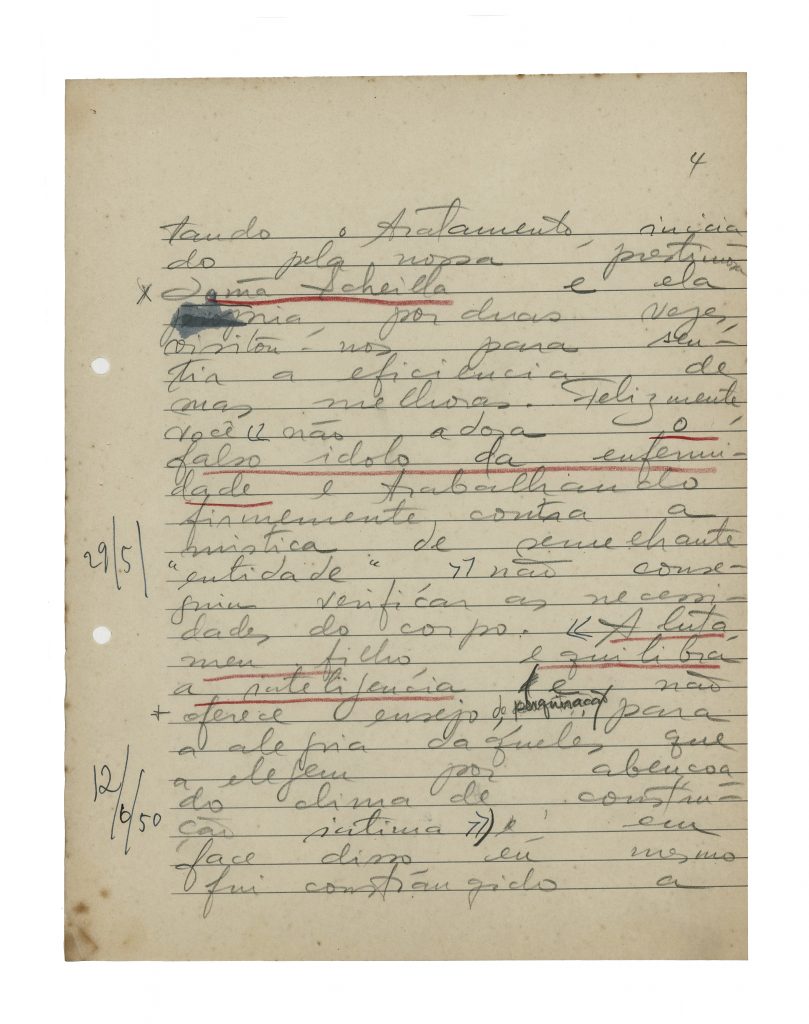 4
tando o tratamento inicia
do pela nossa prestimosa
x Irmã Scheilla e ela
por duas vezes
visitou-nos para sen-
tir a eficiencia de
mas melhoras. Felizmente
você << não adora o
falso idolo da enfermi-
dade e trabalhando
firmemente contra a
mistica de semelhante
29/5/ "entidade" >> não conse-
guiu verificar as necessi-
dades do corpo. << A luta
meu filho, equilibra
a inteligencia e não
+ oferece ensejo de para
a alegria daqueles que
a elegem por abençoa
12/6/50 do clima de constru-
ção intima >>) e em
face disso eu mesmo
fui constrangido a